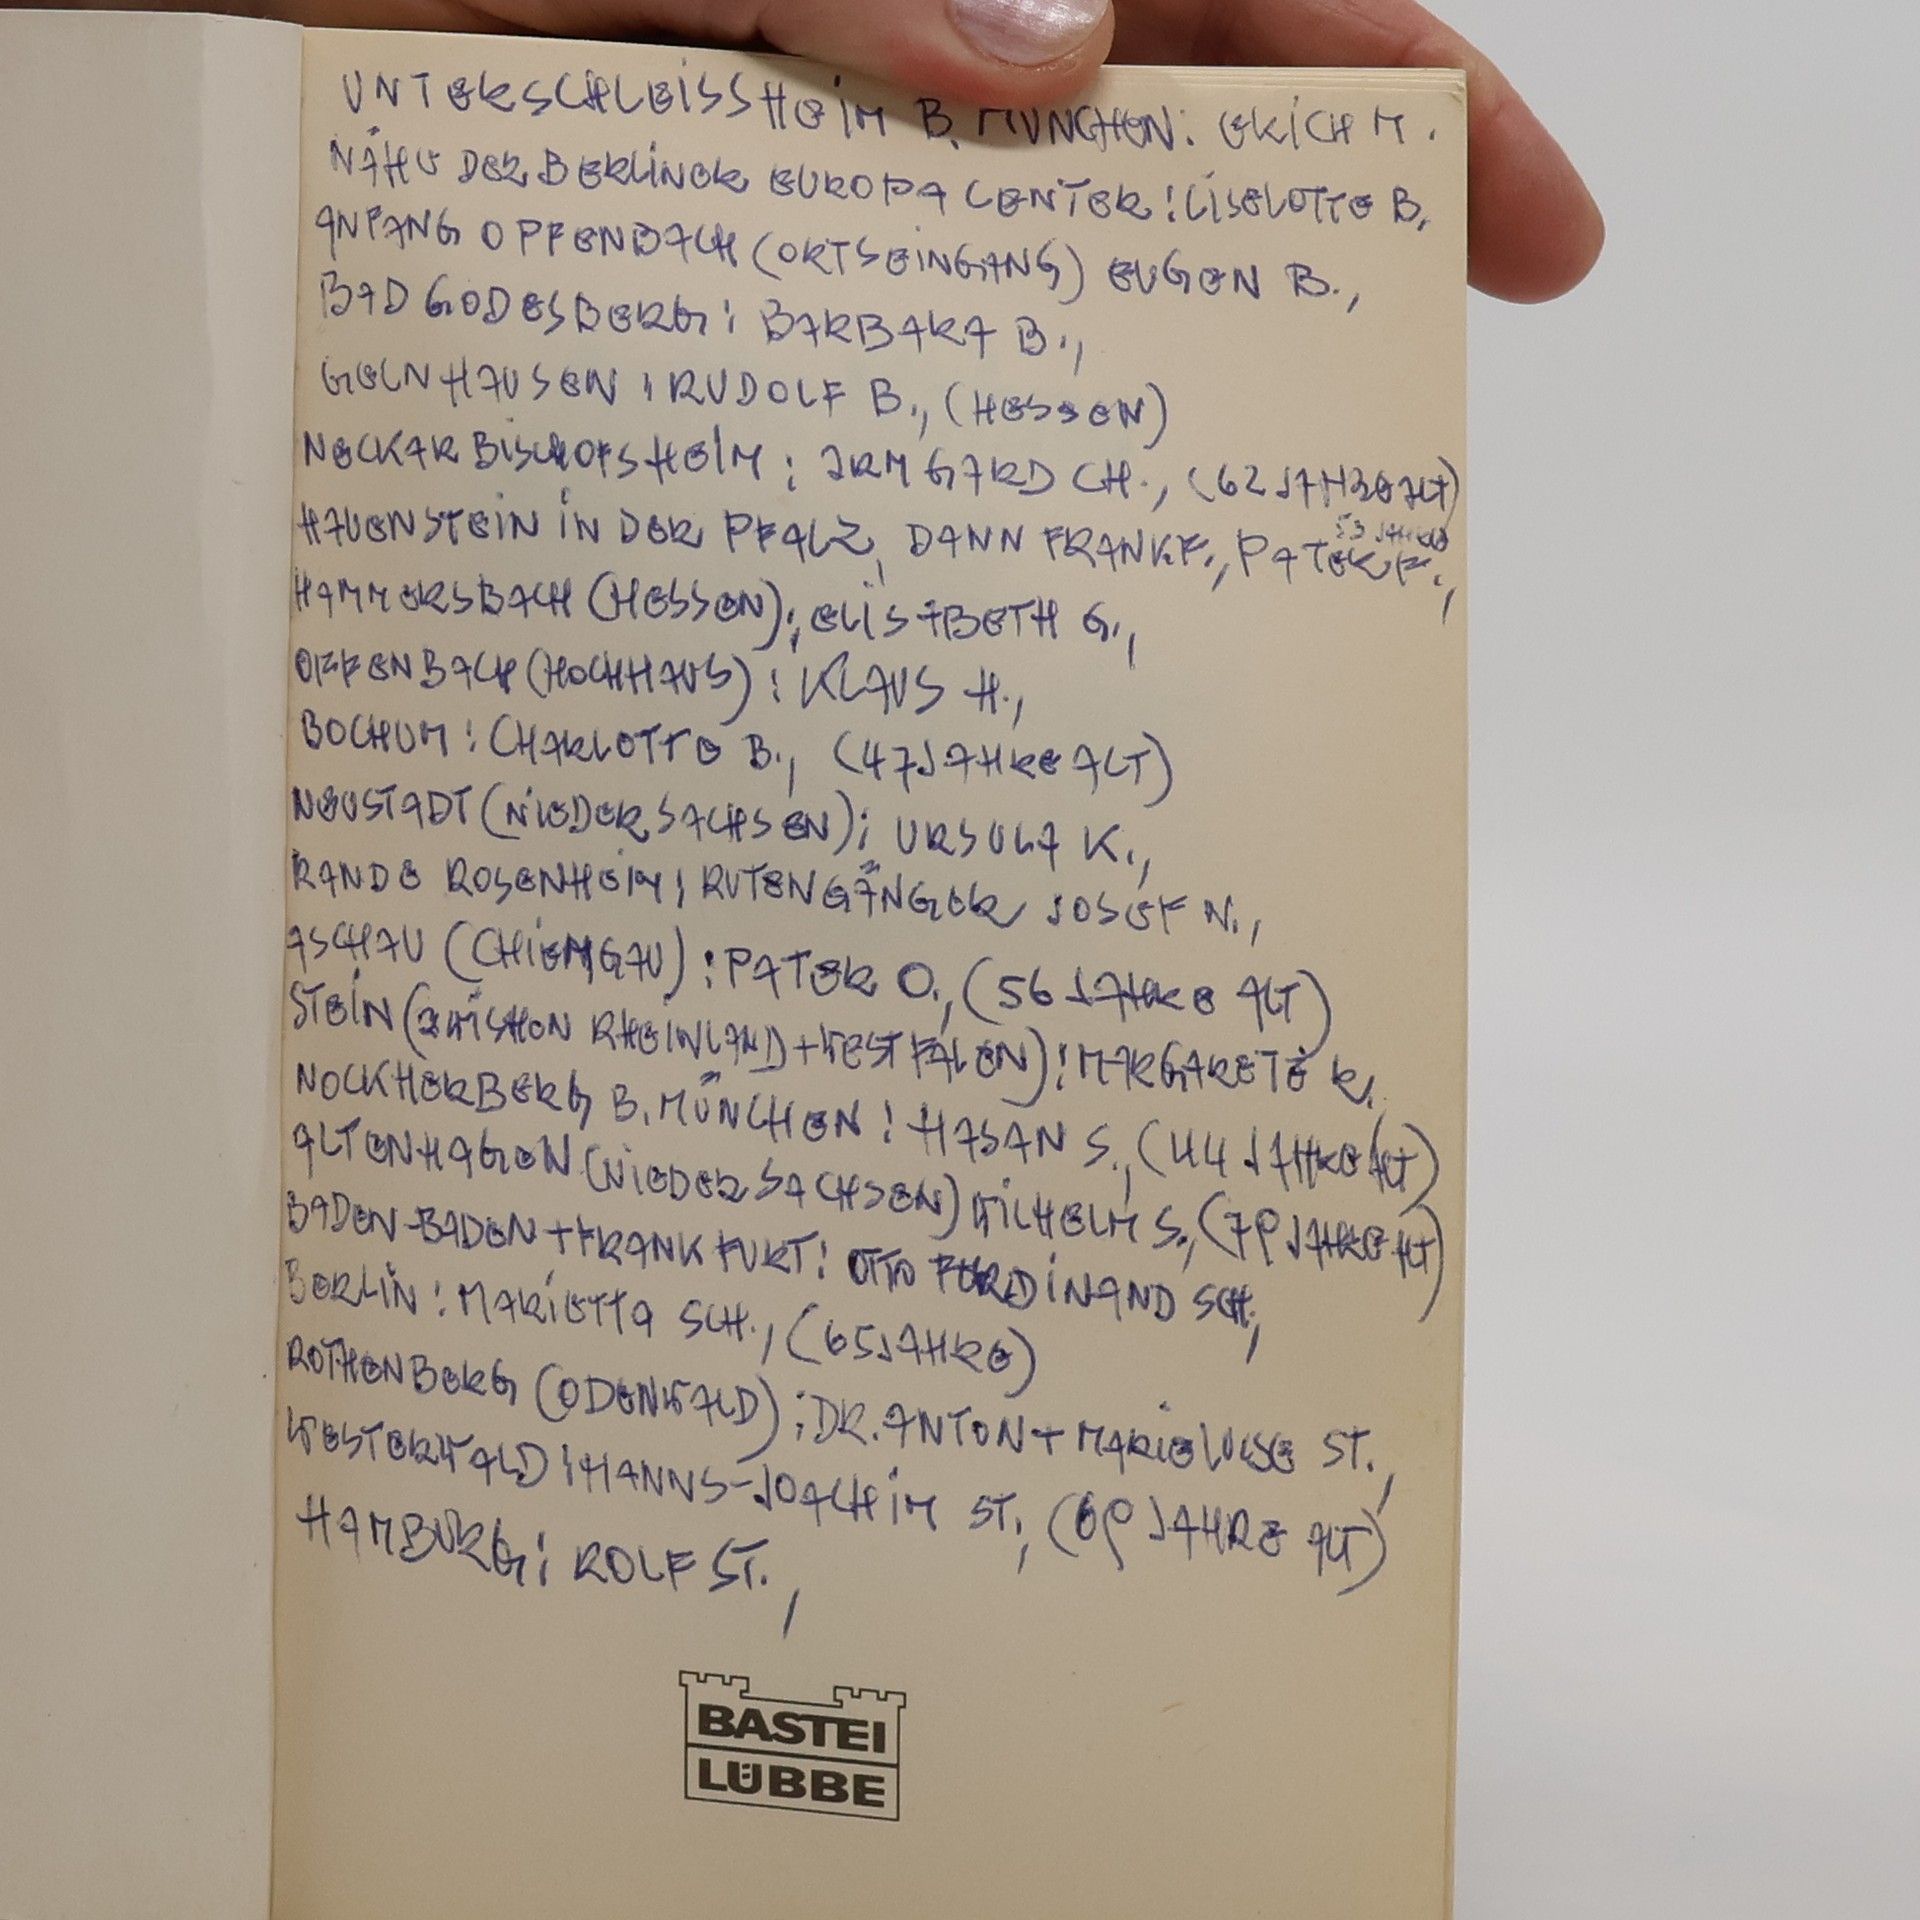 UNTERSCHLEISSHEIM B. MÜNCHEN: ERICH M.
NÄHE DER BERLINER EUROPA CENTER: LISELOTTE B.
ANFANG OFFENBACH (ORTSEINGANG) EUGEN B.,
BAD GODESBERG: BARBARA B.,
GELNHAUSEN: RUDOLF B., (HESSEN)
NECKARBISCHOFSHEIM: IRMGARD CH., (62 JAHRE ALT)
53 JAHRE
HAUENSTEIN IN DER PFALZ, DANN FRANKF., PATER F.,
HAMMERSBACH (HESSEN): ELISABETH G.,
OFFENBACH (HOCHHAUS): KLAUS H.,
BOCHUM: CHARLOTTE B., (47 JAHRE ALT)
NEUSTADT (NIEDERSACHSEN): URSULA K.,
RANDE ROSENHEIM: RUTENGÄNGER JOSEF N.,
ASCHAU (CHIEMGAU): PATER O., (56 JAHRE ALT)
STEIN (ZWISHEN RHEINLAND + WESTFALEN): MARGARETE R.
NOCKHERBERG B. MÜNCHEN: HASAN S., (44 JAHRE ALT)
ALTENHAGEN (NIEDERSACHSEN) WILHELM S., (79 JAHRE ALT)
BADEN-BADEN + FRANKFURT: OTTO FERDINAND SCH.,
BERLIN: MARIETTA SCH., (65 JAHRE)
ROTHENBERG (ODENWALD): DR. ANTON + MARIELUISE ST.,
WESTERWALD: HANNS-JOACHIM ST., (69 JAHRE ALT)
HAMBURG: ROLF ST.,
BASTEI
LÜBBE